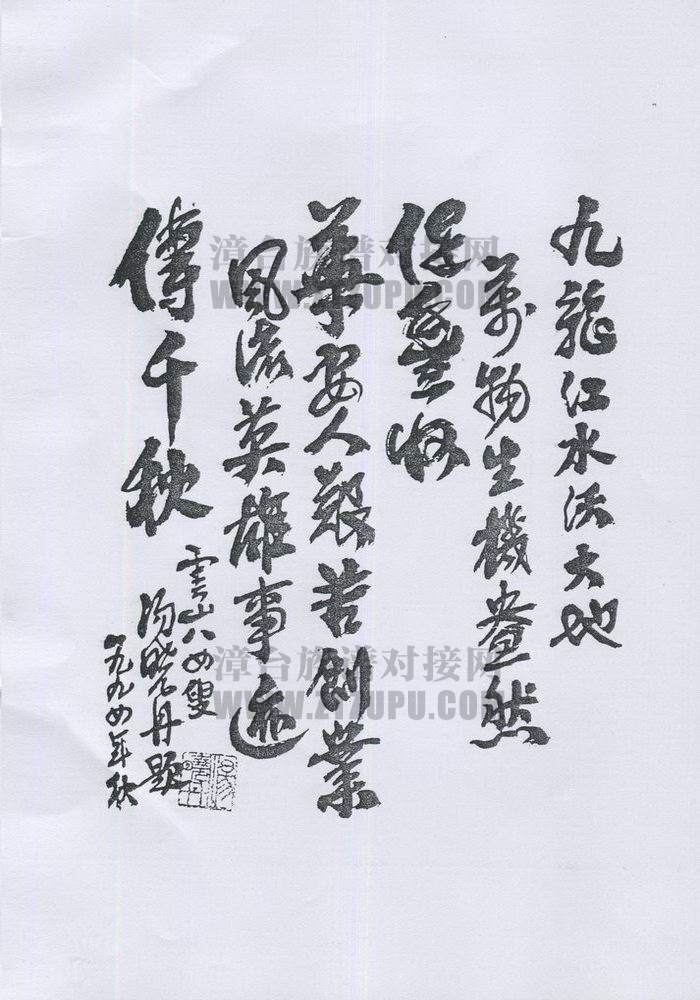 九龍江水沃大地
萬物生機盎然
保豐收
華安人艱苦創業
風流英雄事迹
傳千秋
雲山八四叟
湯曉丹題
一九九四年秋
漳台族谱对接网
WWW.ZTZUPU.COM
漳台族谱对接网
WWW.ZTZUPU.COM